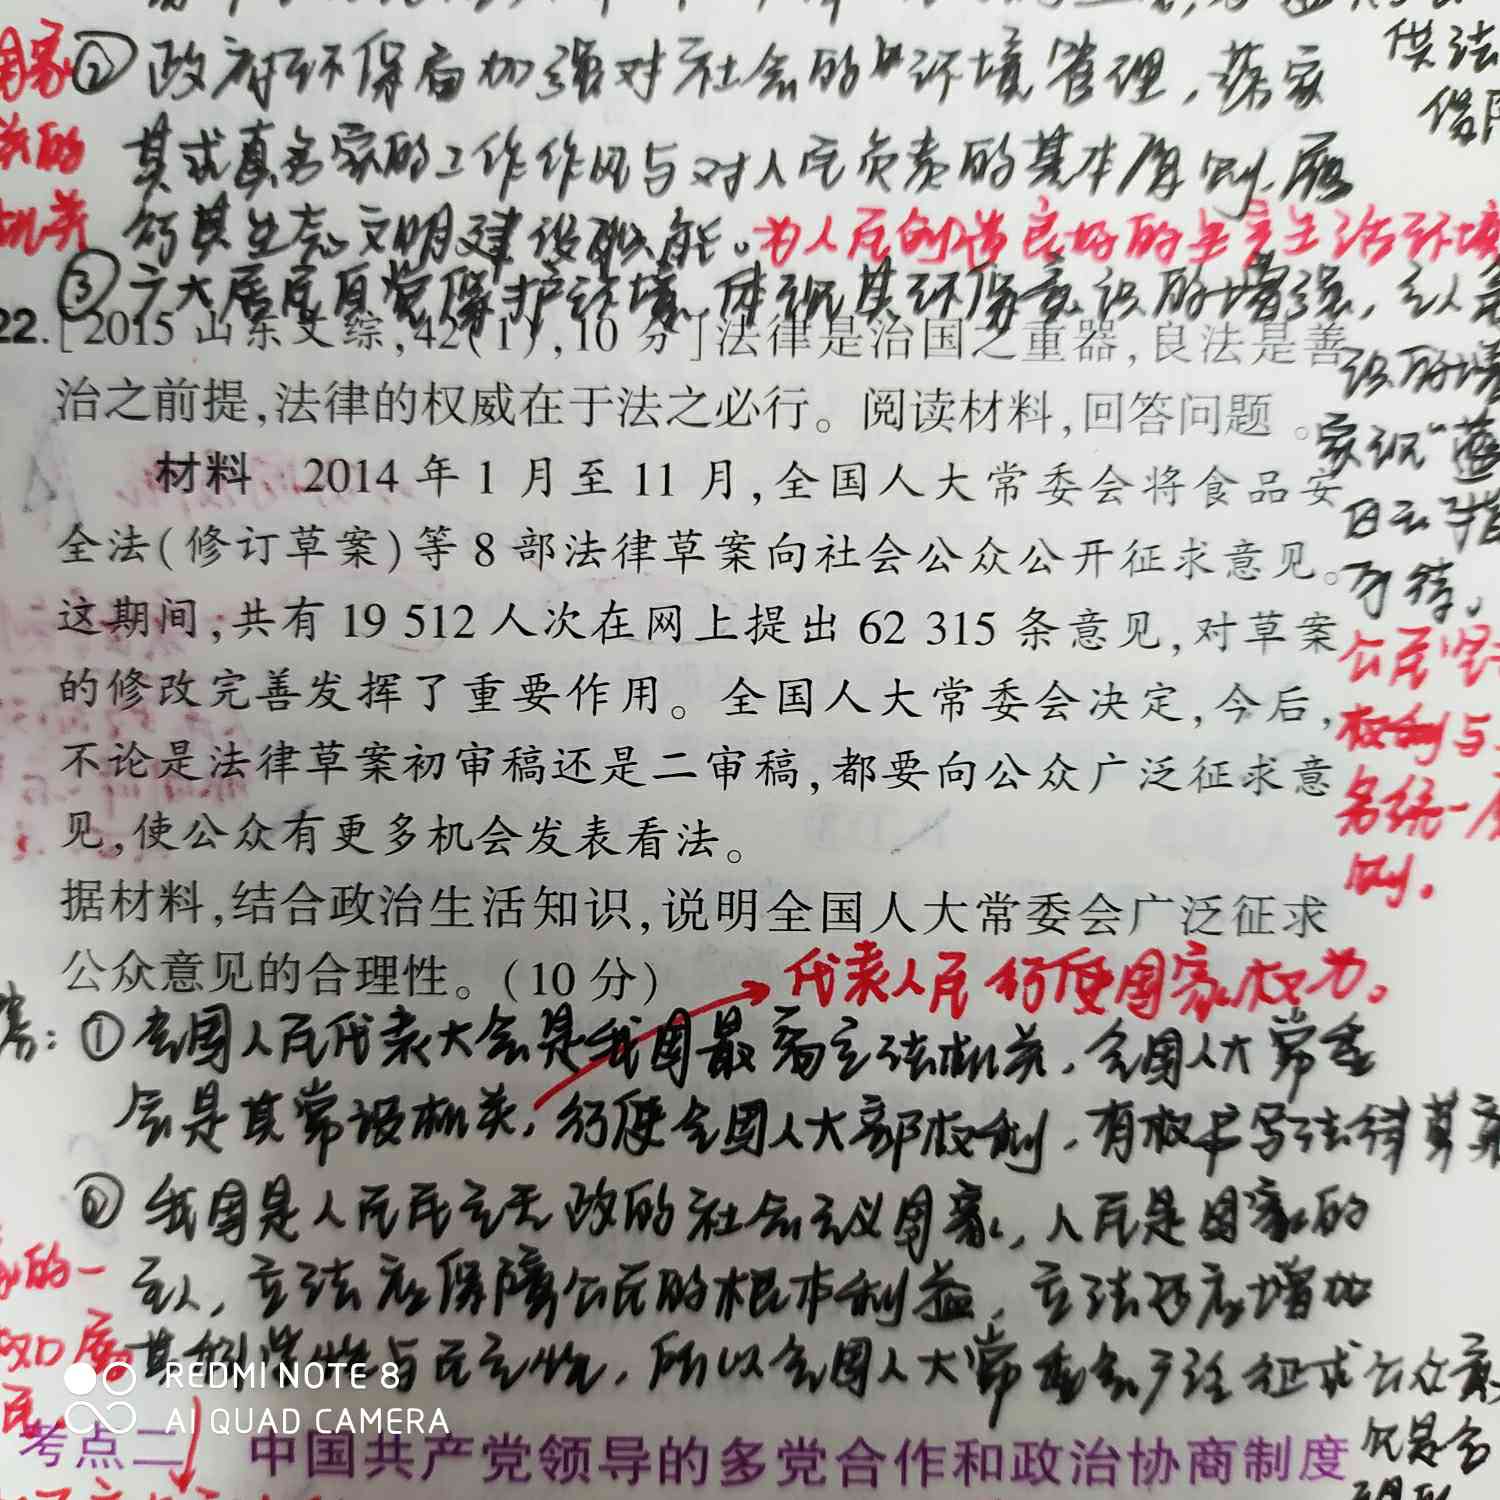 ②政府环保局加强对社会的环境管理，落实
其求真务实的工作作风与对人民负责的基本原则，履
行其生态文明建设职能。为人民创造良好的生产生活环境
③广大居民自觉保护环境，体现其环保意识的增强，主人意
识的增
22.[2015山东文综,42(1),10分]法律是治国之重器,良法是善
治之前提,法律的权威在于法之必行。阅读材料,回答问题。
材料 2014年1月至11月,全国人大常委会将食品安
全法(修订草案)等8部法律草案向社会公众公开征求意见。
这期间,共有19 512人次在网上提出62 315条意见,对草案
的修改完善发挥了重要作用。全国人大常委会决定,今后,
不论是法律草案初审稿还是二审稿,都要向公众广泛征求意
见,使公众有更多机会发表看法。
据材料,结合政治生活知识,说明全国人大常委会广泛征求
公众意见的合理性。(10分)
可待。
公民坚
权利与
务统一原
则。
代表人民行使国家权力。
答：①全国人民代表大会是我国最高立法机关，全国人大常委
会是其常设机关，行使全国人大部权利，有权书写法律草案
②我国是人民民主专政的社会主义国家，人民是国家的
主人，立法应保障公民的根本利益，立法还应增加
其科学性与民主性，所以全国人大常委会广泛征求公众意
见是合
REDMI NOTE 8
AI QUAD CAMERA
考点二 中国共产党领导的多党合作和政治协商制度